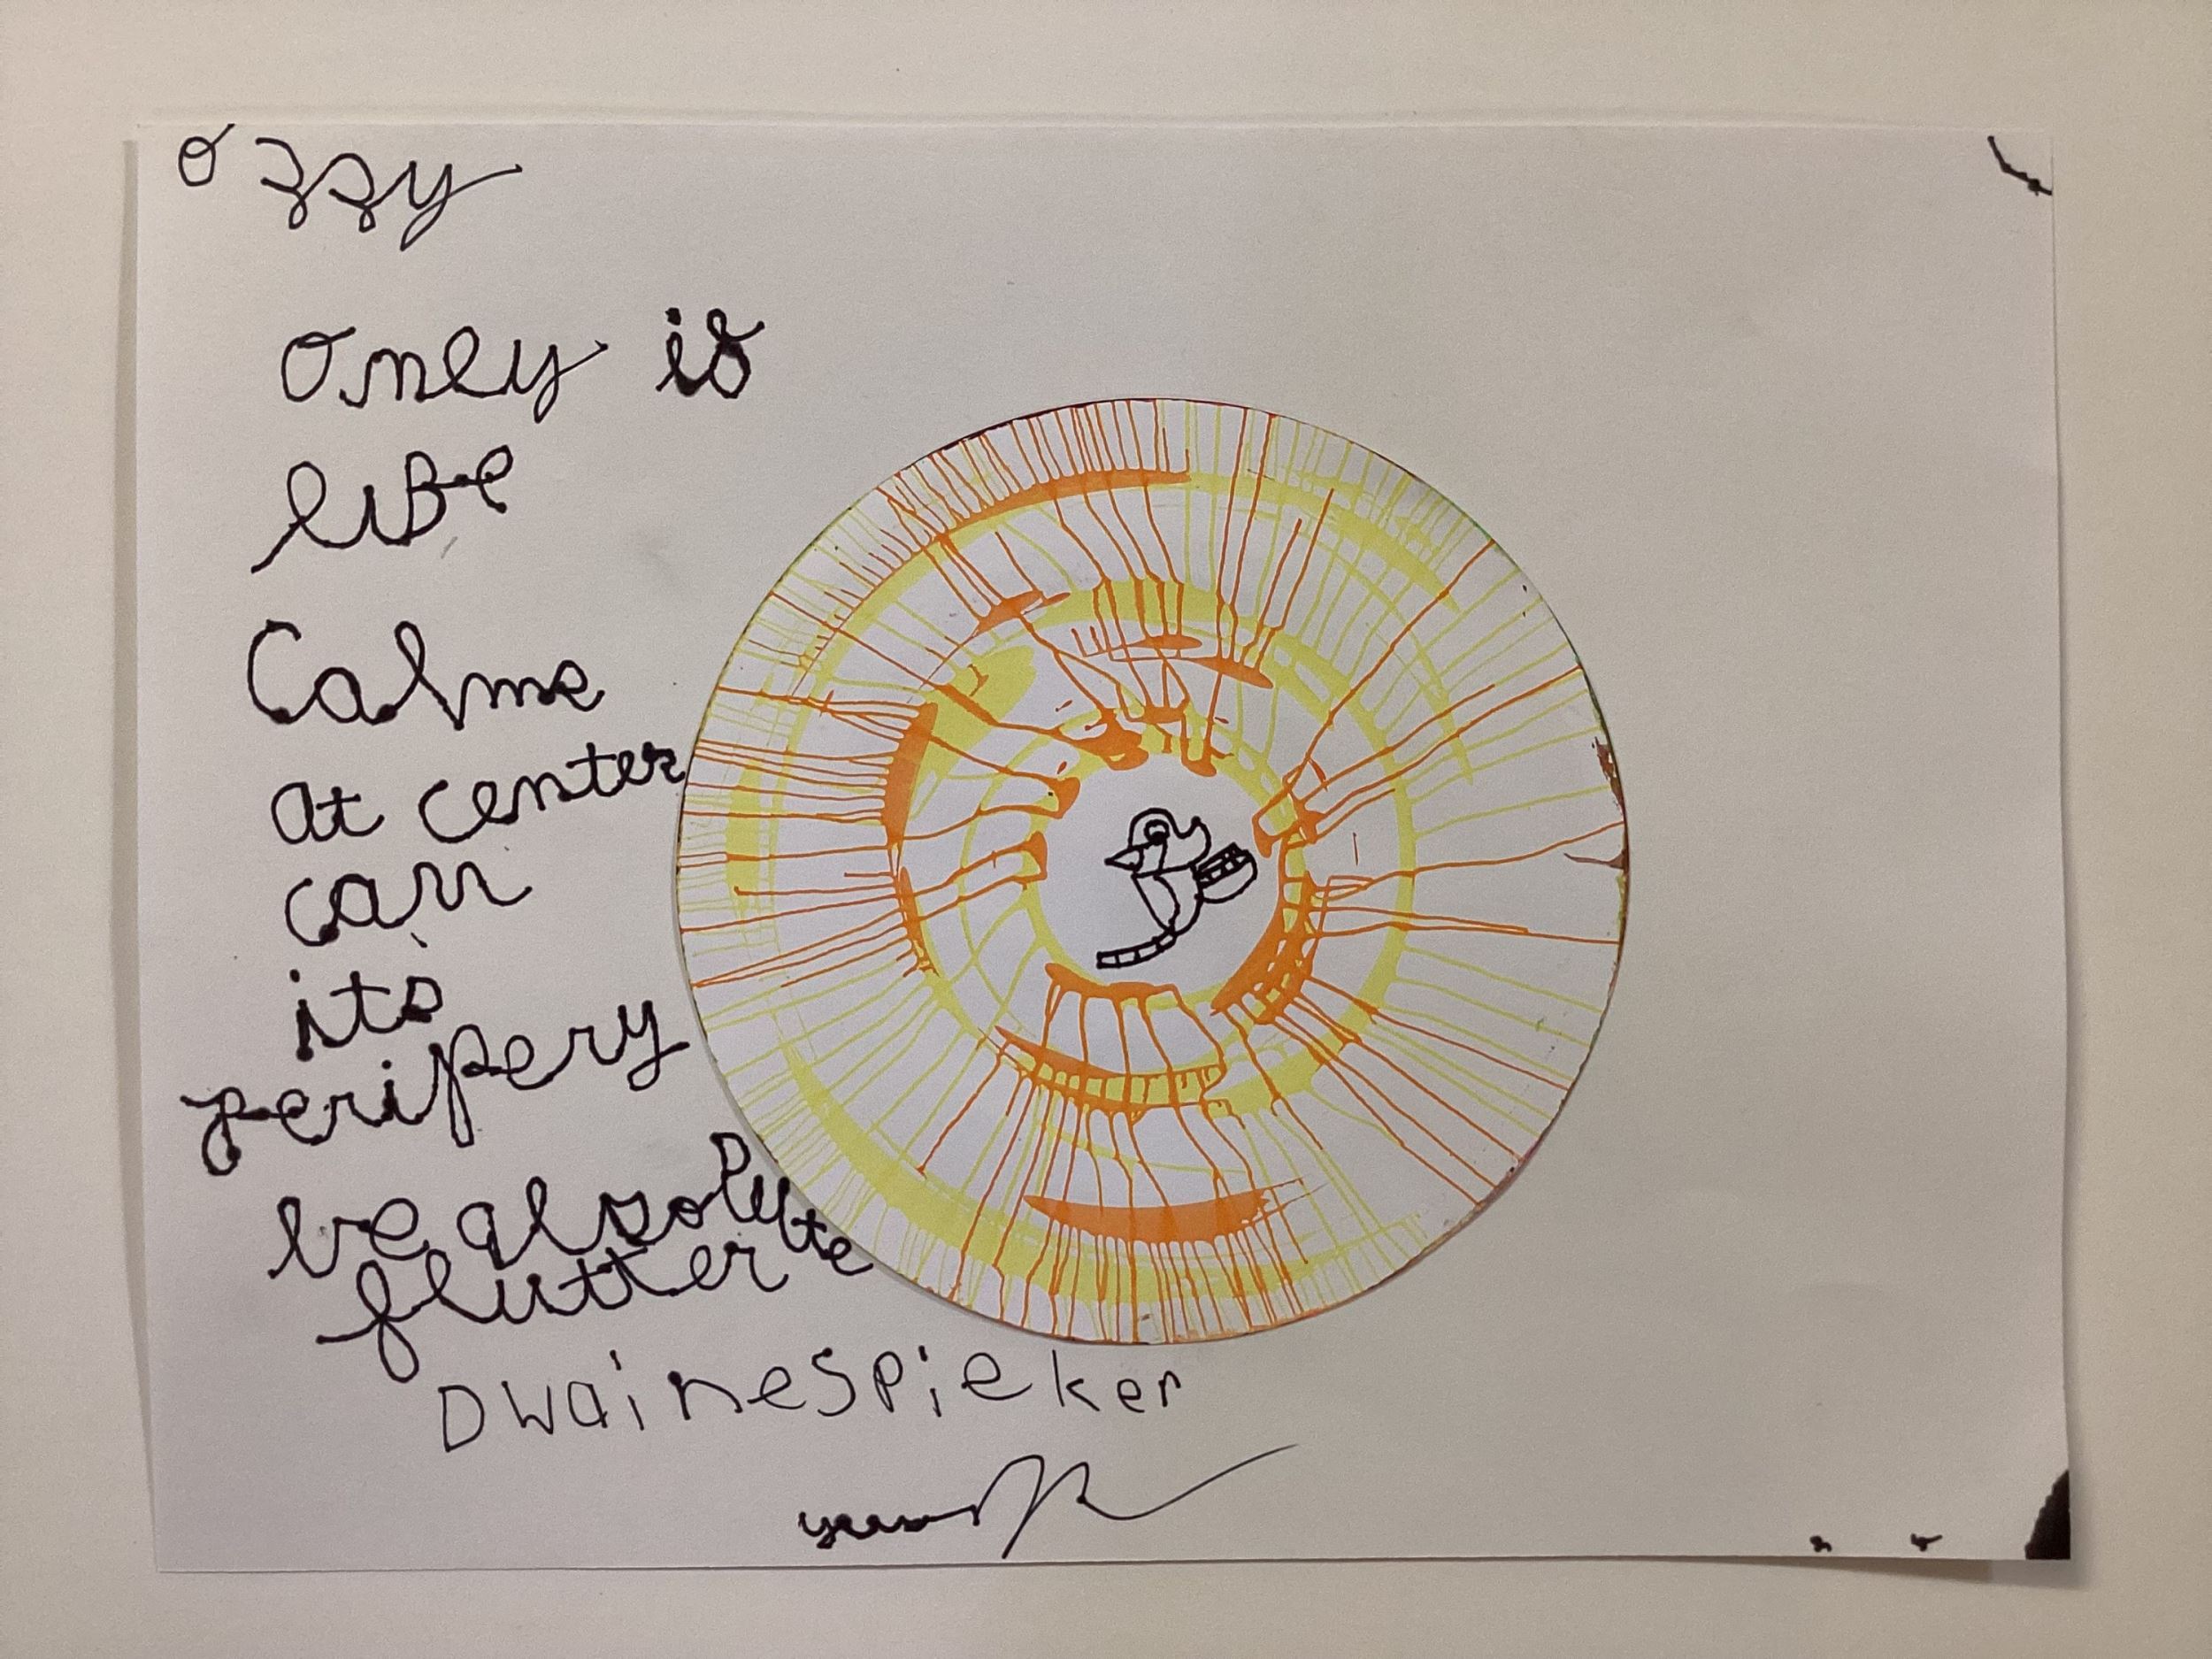 Ozzy
Only is
libe
Calme
at center
can
its
peripery
be absolute
flutter
Dwainespieker